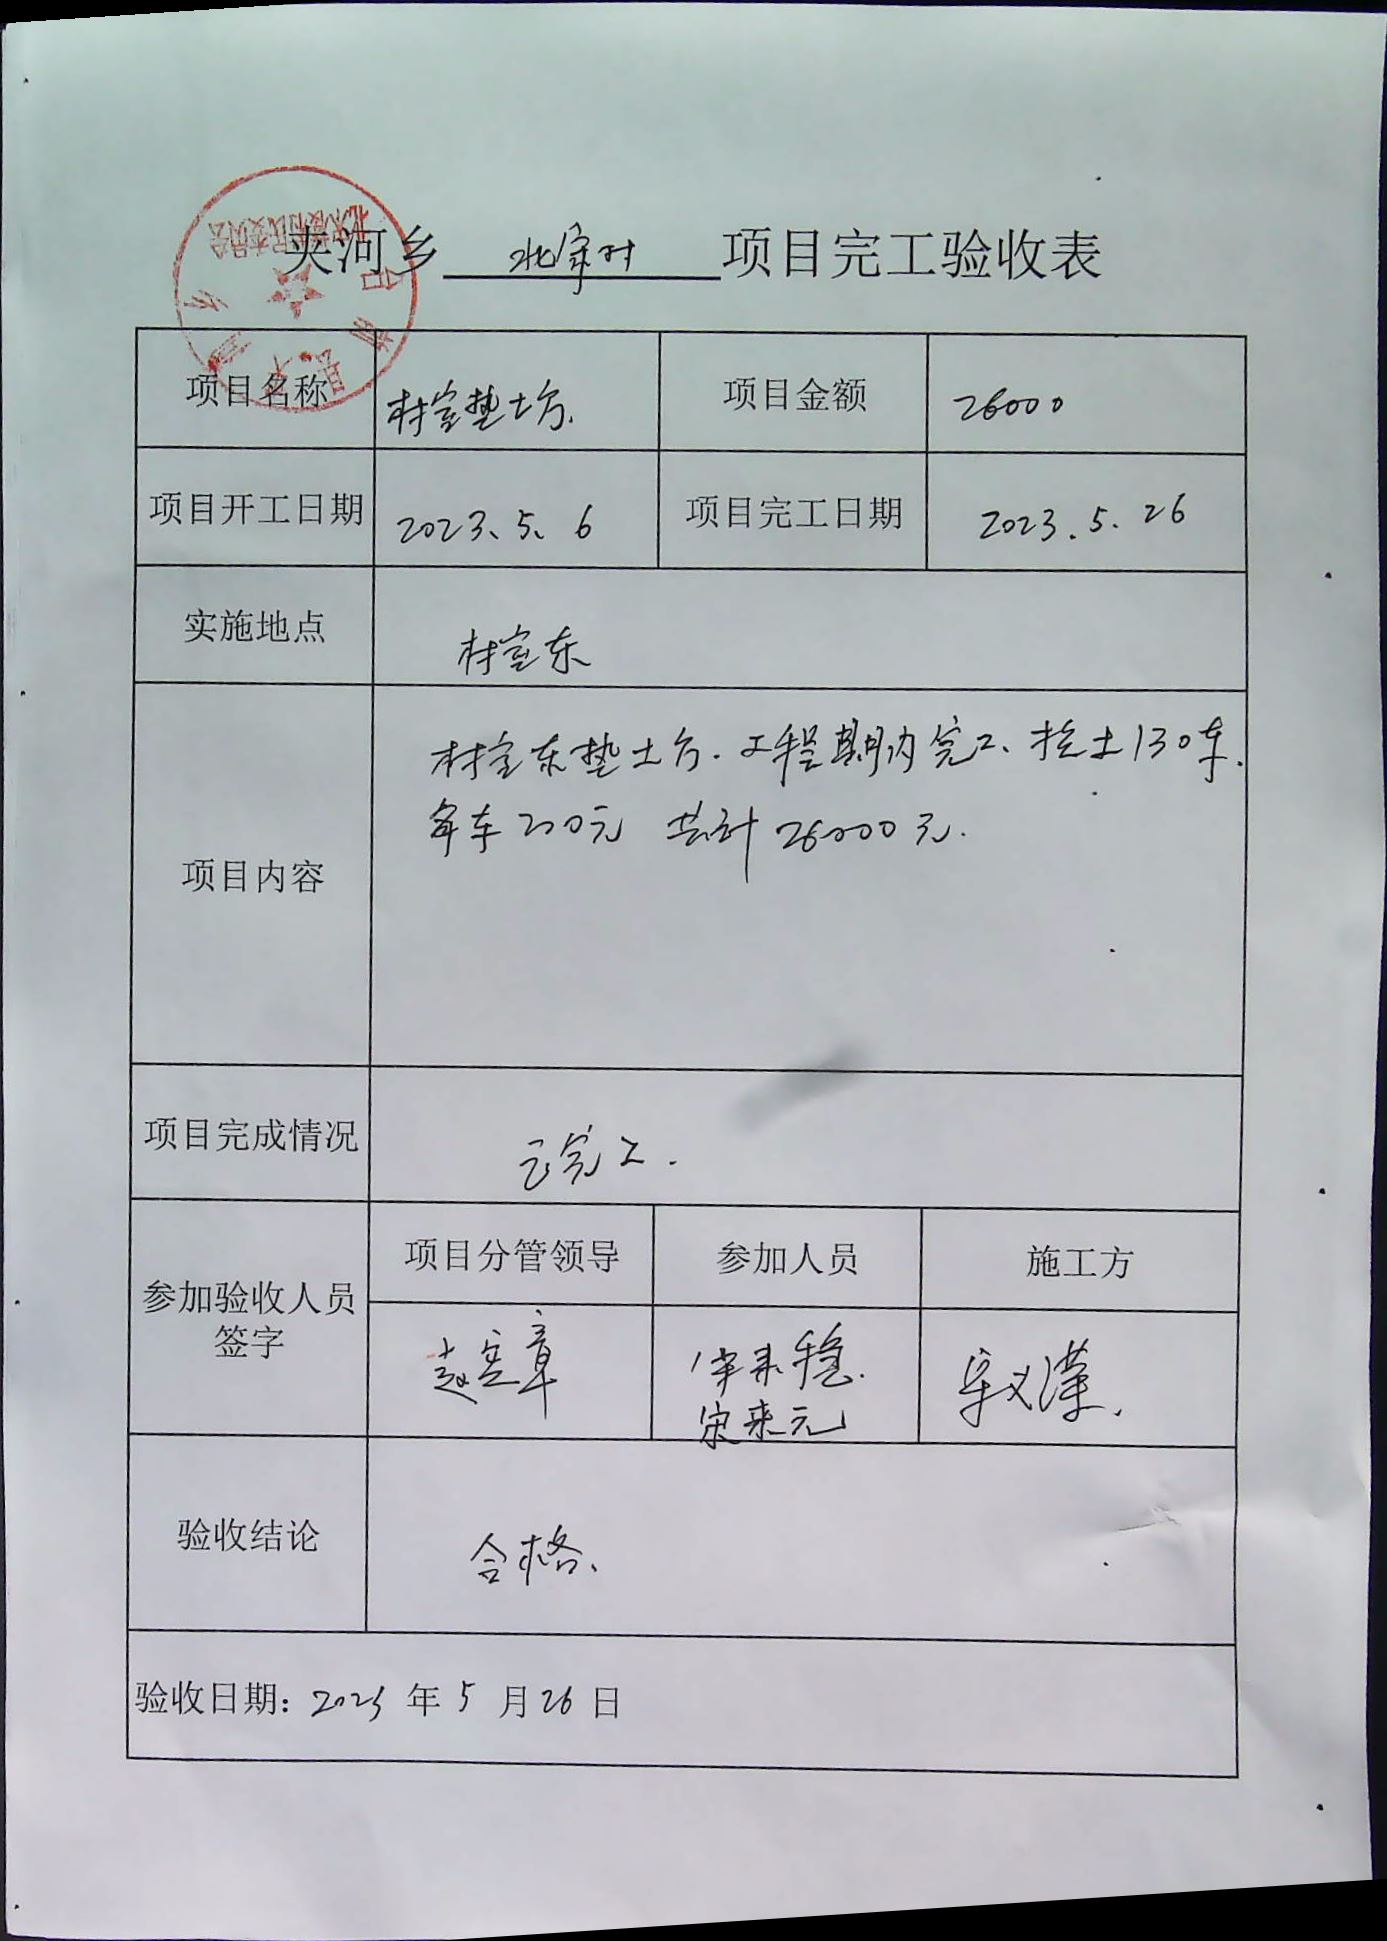 夹河乡 北宋村 项目完工验收表
项目名称 村室垫土方. 项目金额 26000
项目开工日期 2023、5、6 项目完工日期 2023.5.26
实施地点 村室东
项目内容
村室东垫土方.工程期内完工、拉土130车.
每车200元 共计26000元.
项目完成情况 已完工.
参加验收人员
签字
项目分管领导 参加人员 施工方
赵宪章 宋来稳.
宋来元
宋义
验收结论 合格、
验收日期：2023年5月26日